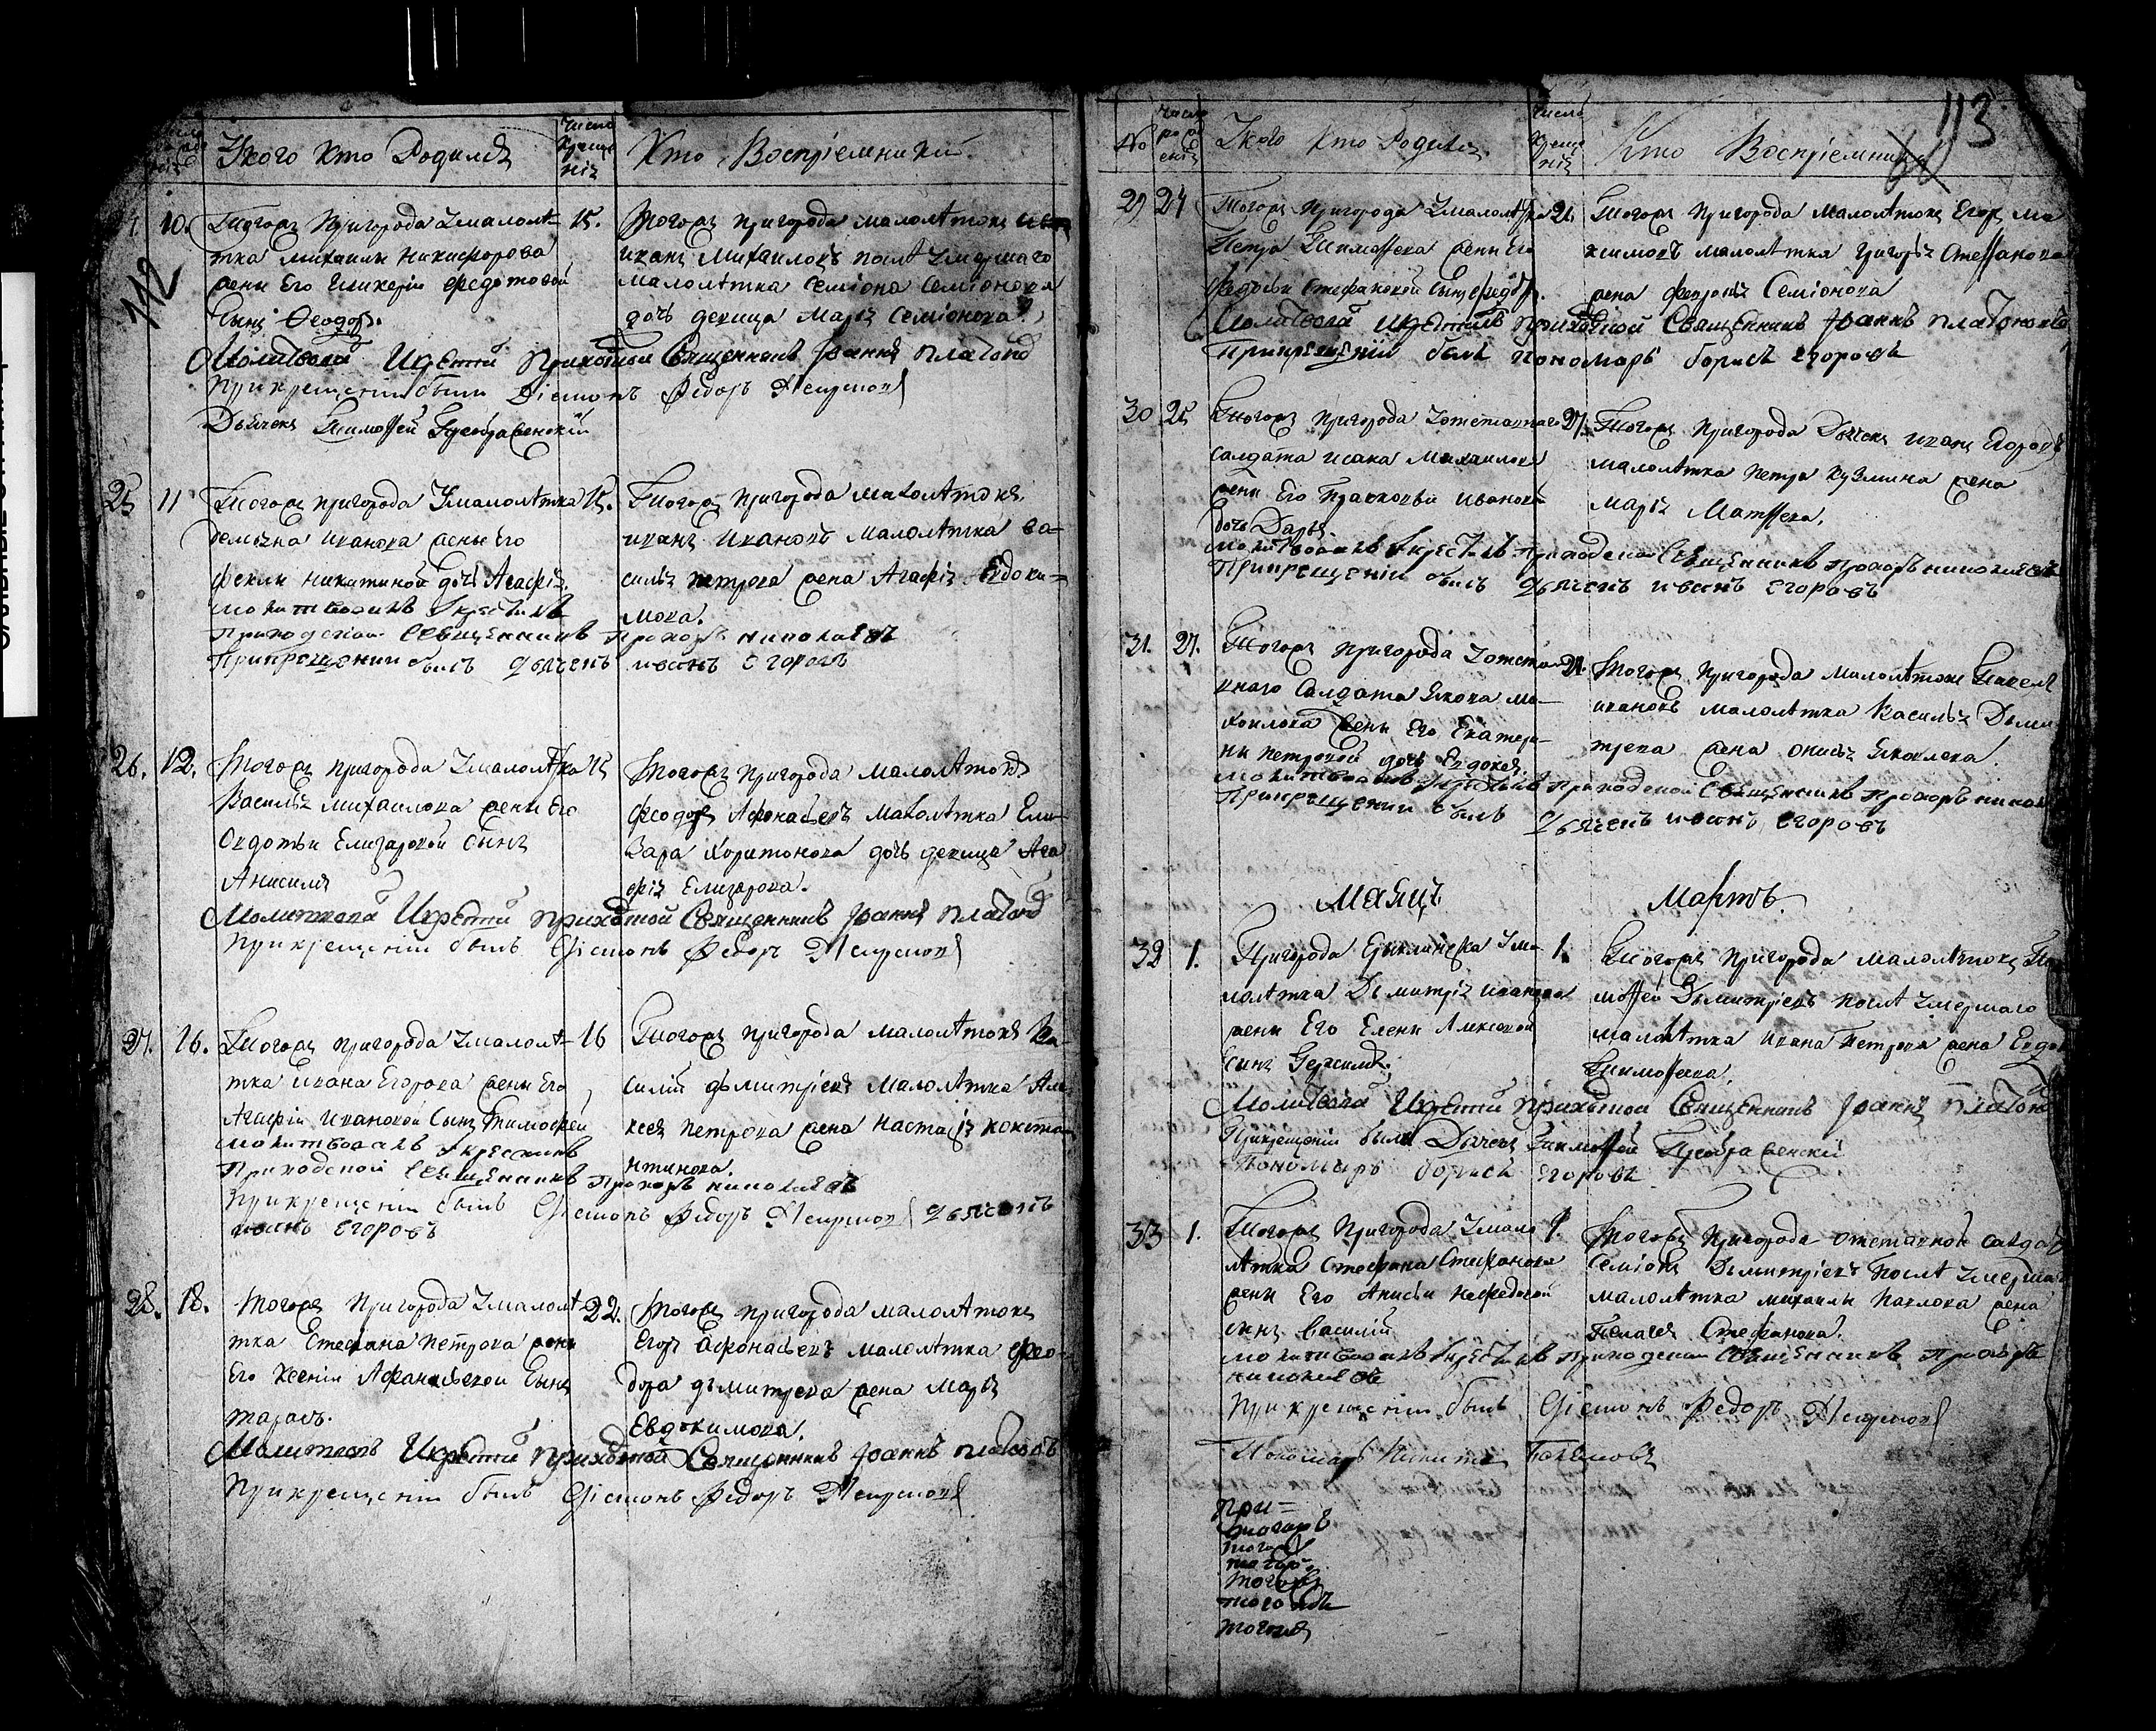 112
У кого кто Родился
Число крещения
Кто Восприемники.
10. Тогожъ Пригорода Умалолѣ-
тка Михаилы Никифорова
жены Его Гликеріи Федотовой
Сынъ Ѳеодоръ.
15. Тогожъ пригорода малолѣтокъ
иванъ Михаиловъ послѣ умершаго
малолѣтка Семіона Семіонова
дочь девица Марія Семіонова
Молитвовалъ Икрестилъ приходской Священникъ Іоаннъ Платоновъ
Прикрещеніи были Діяконъ Федоръ
Дьячекъ Тимофей Преображенскій
25 11 Тогожъ пригорода Умалолѣтка
Демьяна Иванова жены Его
Феклы никитиной дочь Агафія
15. Тогожъ пригорода малолѣтокъ
иванъ Ивановъ малолѣтка Ва-
силья петрова жена Агафія Авдоки-
мова.
молитвовалъ Икрестилъ
Приходской Священникъ Прохоръ николаевъ
Прикрещении былъ дьячекъ иванъ Егоровъ
26. 12. Тогожъ пригорода Умалолѣтка
Василья михаилова жены Его
Овдотьи Елизаровой сынъ
Анисимъ
15 Тогожъ пригорода малолѣтокъ
Феодоръ Афонасьевъ малолѣтка Ели-
зара Харитонова дочь девица Ага-
фія Елизарова.
Молитвовалъ Икрестилъ приходской Священникъ Іоаннъ Платоновъ
Прикрещеніи былъ Діяконъ Федоръ
27. 16. Тогожъ пригорода Умалолѣ-
тка Ивана Егорова жены Его
Агафіи Ивановой Сынъ Тимофей
16 Тогожъ пригорода малолѣтокъ Ва-
силій дьмитріевъ малолѣтка Але-
ксея петрова жена Настасія конста-
нтинова.
молитвовалъ Икрестилъ
Приходской Священникъ Прохоръ николаевъ
Прикрещеніи былъ Діяконъ Федоръ дьячекъ
иванъ Егоровъ
28. 18. Тогожъ Пригорода Умалолѣ-
тка Стефана Петрова жены
Его Ксеніи Афанасьевой Сынъ
тарасъ.
22. Тогожъ пригорода малолѣтокъ
Егоръ Афонасьевъ малолѣтка Фео-
дора дьмитрева жена Марія
Евдокимова.
Молитвовалъ Икрестилъ приходской Священникъ Іоаннъ Платоновъ
Прикрещеніи былъ Діяконъ Федоръ
113
№
Число рождения
У кого кто Родился.
Число Крещения
Кто Восприемники
29 24 Тогожъ Пригорода Умалолѣтка
Петра Тимофеева жены Его
Федосьи Стефановой Сынъ Федоръ.
Тогожъ пригорода малолѣтокъ Егоръ Ма-
ксимовъ малолѣтка Григорья Стефанова
жена Февронья Семіонова
Молитвовалъ Икрестилъ приходской Священникъ Іоаннъ Платоновъ
Прикрещеніи былъ пономарь борисъ егоровъ
30 25 Тогожъ пригорода Уотставнаго
салдата исака Михаилова
жены Его Прасковьи Ивановой
дочь Дарья
27. Тогожъ Пригорода Дьячекъ иванъ Егоровъ
малолѣтка петра кузмина жена
Марья Матфеева.
молитвовалъ Икрестилъ приходской Священникъ прохоръ николаевъ
Прикрещеніи былъ дьячекъ иванъ Егоровъ
31. 27. Тогожъ пригорода Уотста-
внаго Салдата Якова ми-
хаилова жены Его Екатери-
ны петровой дочь Евдокея
Тогожъ пригорода малолѣтокъ Савелей
ивановъ малолѣтка Василья Дьми-
трева жена онисья Яковлева.
молитвовалъ Икрестилъ Приходской Священникъ Прохоръ никол
Прикрещении былъ дьячекъ иванъ Егоровъ
Мѣсяцъ Мартъ.
32 1. Пригорода Ерыклинска Ума-
лолѣтка Дьмитрія иванова
жены Его Елены Алексеевой
Сынъ Герасимъ
1. Тогожъ пригорода малолѣтокъ Ти-
мофей Дьмитріевъ послѣ умершаго
малолѣтка ивана Петрова жена Евдо
Тимофеева.
Молитвовалъ Икрестилъ приходской Священникъ Іоаннъ Платоновъ
Прикрещеніи были Дьячекъ Тимофей Преображенскій
Пономарь борисъ Егоровъ
33 1. Тогожъ Пригорода Умало-
лѣтка Стефана Стефанова
жены Его Анисьи Нефедовой
сынъ Василій
1. Тогожъ Пригорода отставной салдатъ
Семіонъ Дьмитріевъ послѣ умерша
малолѣтка михаилы Павлова жена
Пелагея Стефанова.
молитвовалъ Икрестилъ приходской Священникъ Прохоръ
николаевъ
Прикрещеніи былъ Діяконъ Федоръ
Пономарь Никита
при-
тогожъ
тогожъ
тогожъ
тогожъ
тогожъ